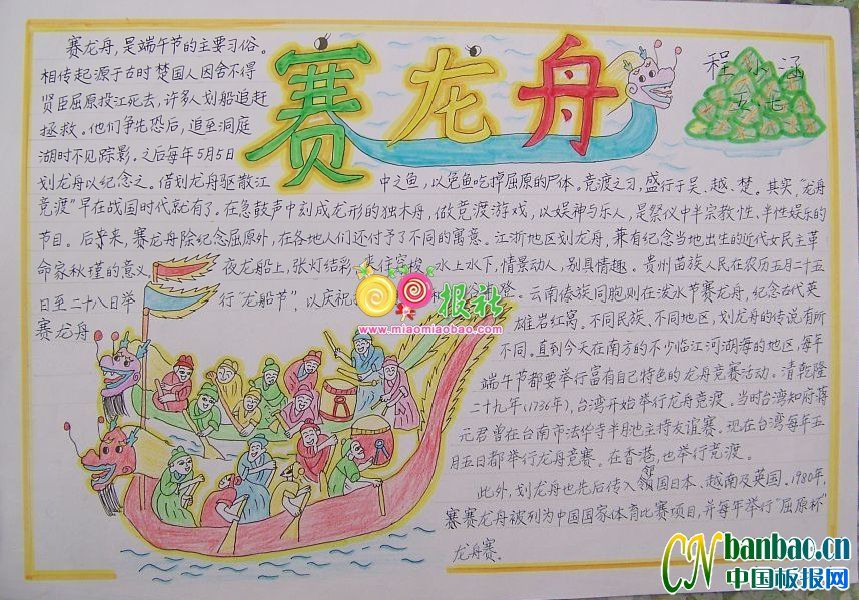 赛龙舟
程小涵
五七
赛龙舟，是端午节的主要习俗。
相传起源于古时楚国人因舍不得
贤臣屈原投江死去，许多人划船追赶
拯救。他们争先恐后，追至洞庭
湖时不见踪影。之后每年5月5日
划龙舟以纪念之。借划龙舟驱散江中之鱼，以免鱼吃掉屈原的尸体。竞渡之习，盛行于吴、越、楚。其实，"龙舟
竞渡"早在战国时代就有了。在急鼓声中刻成龙形的独木舟，做竞渡游戏，以娱神与乐人，是祭仪中半宗教性、半性娱乐的
节目。后来，赛龙舟除纪念屈原外，在各地人们还付予了不同的寓意。江浙地区划龙舟，兼有纪念当地出生的近代女民主革
命家秋瑾的意义。夜龙船上，张灯结彩，来往穿梭，水上水下，情景动人，别具情趣。贵州苗族人民在农历五月二十五
日至二十八日举行"龙船节"，以庆祝 登。云南傣族同胞则在泼水节赛龙舟，纪念古代英
赛龙舟
雄岩红窝。不同民族、不同地区，划龙舟的传说有所
不同。直到今天在南方的不少临江河湖海的地区，每年
端午节都要举行富有自己特色的龙舟竞赛活动。清乾隆
二十九年(1736年)，台湾开始举行龙舟竞渡。当时台湾知府蒋
元君曾在台南市法华寺半月池主持友谊赛。现在台湾每年五
月五日都举行龙舟竞赛。在香港，也举行竞渡。
此外，划龙舟也先后传入领国日本、越南及英国。1980年，
赛赛龙舟被列为中国国家体育比赛项目，并每年举行"屈原杯"
龙舟赛。
报社
www.miaomiaobao.com
CNbanbao.cn
中国板报网